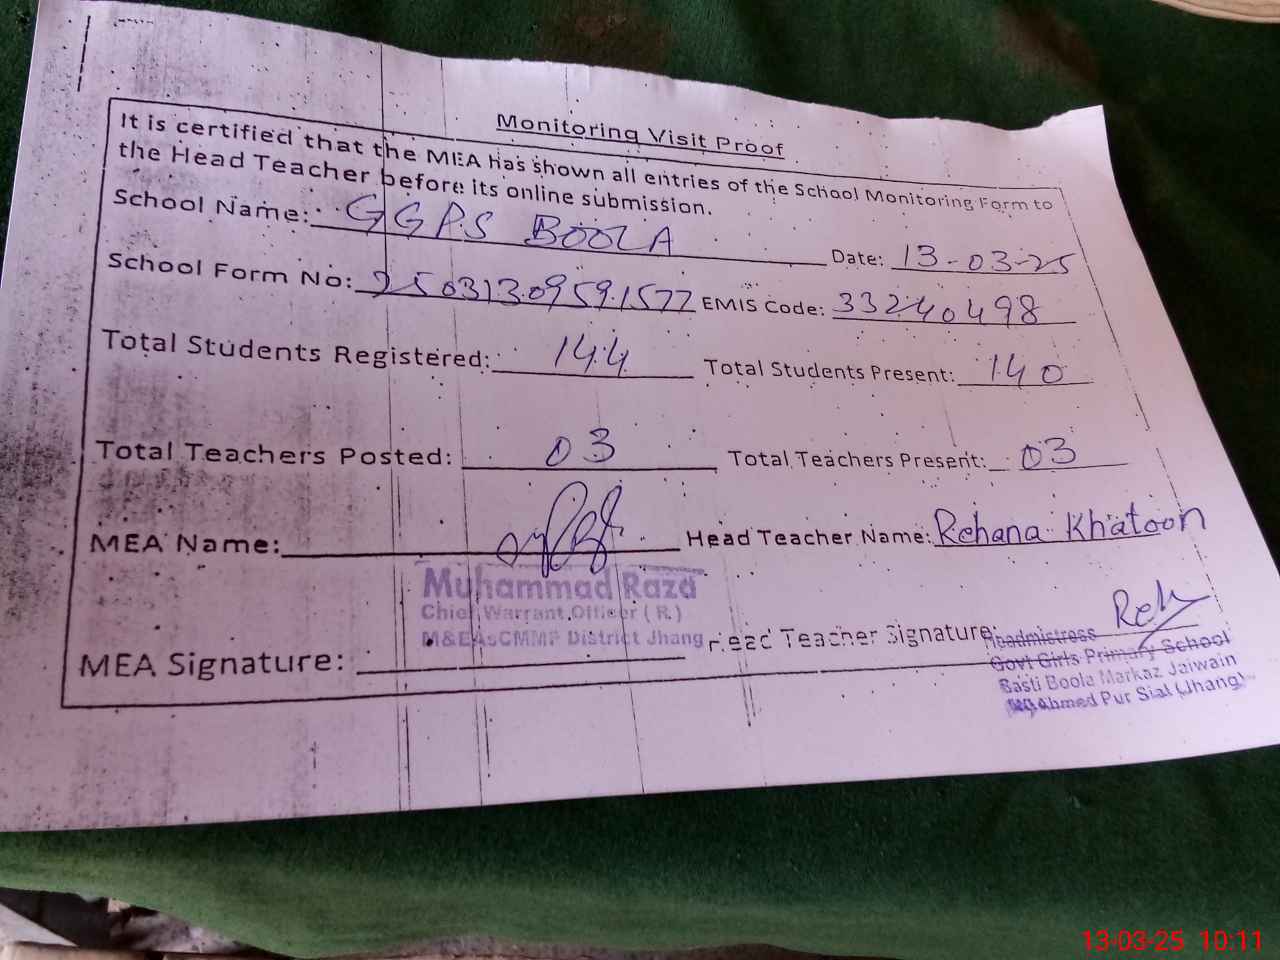 Monitoring Visit Proof
It is certified that the MEA has shown all entries of the School Monitoring Form to
the Head Teacher before its online submission.
School Name: GGPS BOOLA Date: 13-03-25
School Form No: 250313.0959.1577 EMIS Code: 33240498
Total Students Registered: 144 Total Students Present: 140
Total Teachers Posted: 03 Total Teachers Present: 03
MEA Name: Head Teacher Name: Rehana Khatoon
Muhammad Raza
Chief Warrant Officer (R)
M&EAsCMMF District Jhang
MEA Signature: Head Teacher Signature: Reh
Headmistress
Govt Girls Primary School
Basti Boola Markaz Jaiwain
Ahmed Pur Sial (Jhang)
13-03-25 10:11